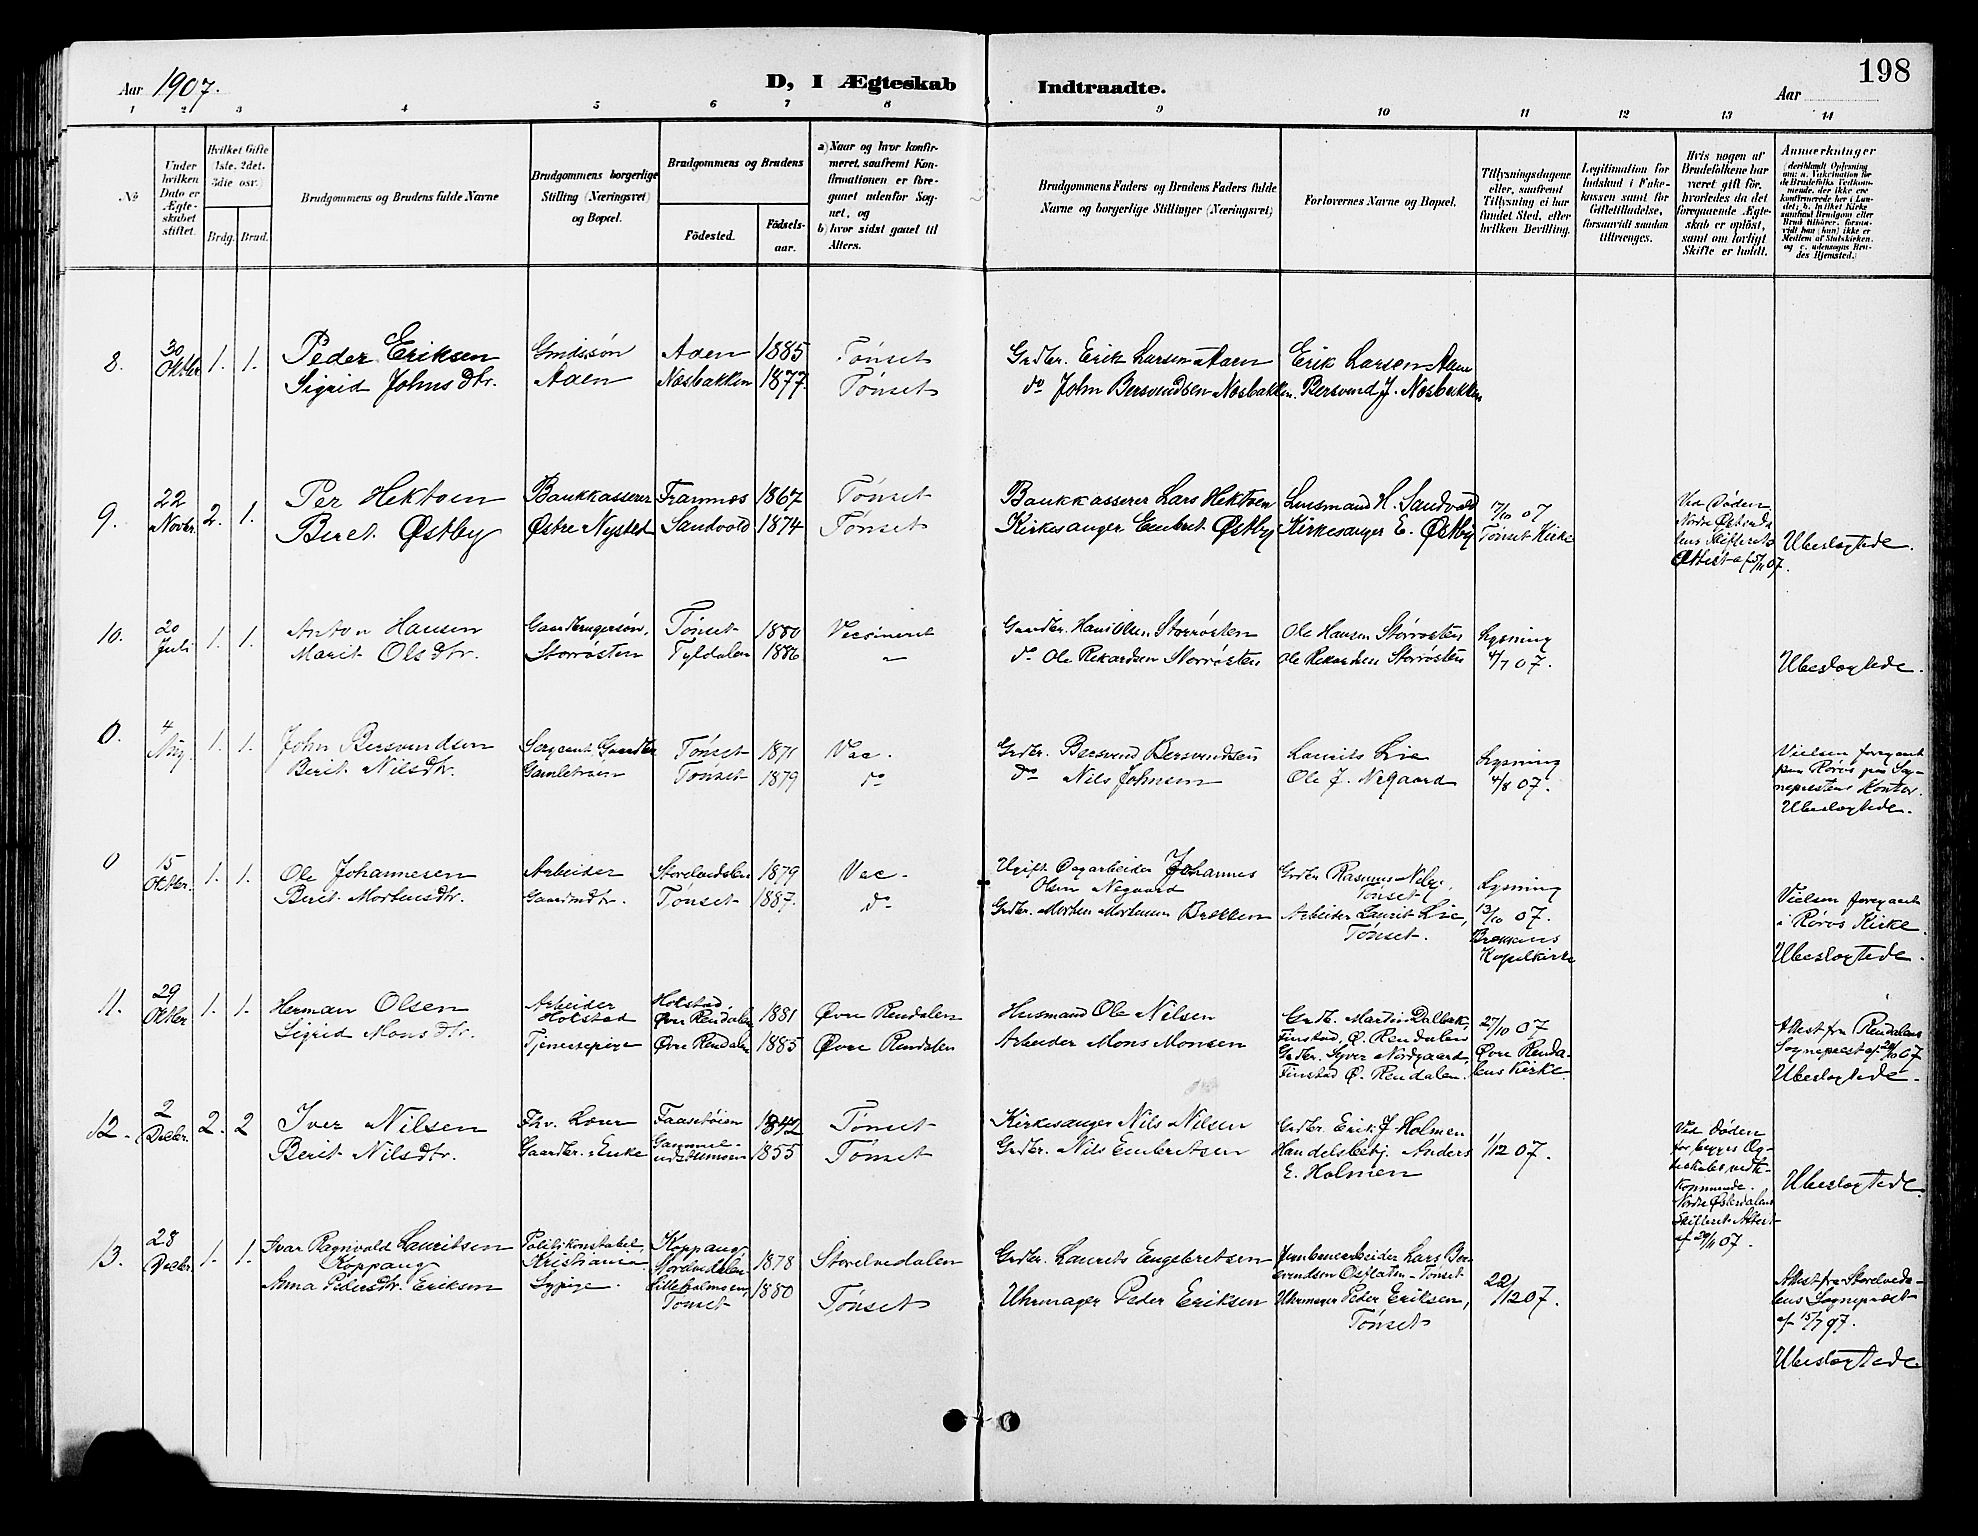 Aar 1907.
D, I Ægteskab Indtraadte.
198
Aar
1 2 3 4 5 6 7 8 9 10 11 12 13 14
No
Under hvilken Dato er Ægteskabet stiftet.
Hvilket Gifte (1ste, 2det, 3die osv.)
Brdg. Brud.
Brudgommens og Brudens fulde Navne
Brudgommens borgerlige Stilling (Næringsvei) og Bopæl.
Brudgommens og Brudens
Fødested.
Fødselsaar.
a) Naar og hvor konfirmeret, saafremt Konfirmationen er foregaaet udenfor Sognet, og
b) hvor sidst gaaet til Alters.
Brudgommens Faders og Brudens Faders fulde Navne og borgerlige Stillinger (Næringsvei)
Forlovernes Navne og Bopæl.
Tillysningsdagene eller, saafremt Tillysning ei har fundet Sted, efter hvilken Bevilling.
Legitimation for Indskud i Enkekassen samt for Giftetilladelse, forsaavidt saadan tiltrænges.
Hvis nogen af Brudefolkene har været gift før, hvorledes da det foregaaende Ægteskab er opløst, samt om lovligt Skifte er holdt.
Anmærkninger
8. 30 Oktbr. 1. 1.
Peder Eriksen
Sigrid Johnsdtr.
Gmdssøn
Aaen
Aaen 1885 Tønset
Næsbakken 1877 Tønset
Grdbr. Erik Larsen Aaen
do John Bersvendsen Næsbakken.
Erik Larsen Aaen
Bersvend J. Næsbakken
9. 22 Novbr. 2. 1.
Per Hektoen
Beret Østby
Bankkasserer
Østre Nysted
Framnes 1867 Tønset
Sandvold 1874 Tønset
Bankkasserer Lars Hektoen
Kirkesanger Embret Østby
Lensmand H. Sandvold
Kirkesanger E. Østby
17/10 07
Tønset Kirke
Ved Døden
Nordre Østerda
lens Skifterets
Attest af 5/11 07.
Ubeslægtede.
10. 20 Juli 1. 1.
Anton Hansen
Marit Olsdtr.
Gaardbrugersøn,
Storrøsten
Tønset 1880
Tyldalen 1886
Vaccineret
"
Gaardbr. Hans Olsen Storrøsten
do Ole Rekardsen Storrøsten
Ole Hansen Storrøsten
Ole Rekardsen Storrøsten
Lysning
4/7 07.
Ubeslægtede.
0. 4 Aug 1. 1.
John Bersvendsen
Berit Nilsdtr.
Sergeant Gaardbr
Gamletrøen
Tønset 1871 Vac.
Tønset 1879 do
Grdbr. Bersvend Bersvendsen
do Nils Johnsen
Laurits Lie
Ole J. Negaard
Lysning
4/8 07.
Vielsen foregaaet
paa Røros paa Sog-
neprestens Kontor.
Ubeslægtede.
0 15 Oktbr. 1. 1.
Ole Johannesen
Berit Mortensdtr.
Arbeider
Gaardmdtr.
Storelvedalen 1879 Vac.
Tønset 1887. do
Ugift Dagarbeider Johannes
Olsen Negaard
Grdbr. Morten Mortensen Brekken
Grdbr. Rasmus Nilsen,
Tønset
Arbeider Laurit Lie,
Tønset.
Lysning
13/10 07.
Brekkens
Kapelkirke
Vielsen foregaaet
i Røros Kirke.
Ubeslægtede.
11. 29 Oktbr 1. 1.
Herman Olsen
Sigrid Monsdtr.
Arbeider
Holstad
Tjenestepige
Holstad
Øvre Rendalen 1881 Øvre Rendalen
Øvre Rendalen 1885 Øvre Rendalen
Husmand Ole Nilsen
Arbeider Mons Monsen
Grdbr. Martin Dalbakk,
Finstad, Ø. Rendalen
Grdbr. Syver Nordgaard,
Finstad Ø. Rendalen.
27/10 07
Øvre Renda-
lens Kirke.
Attest fra Rendalens
Sogneprest af 28/10 07
Ubeslægtede.
12. 2 Decbr. 2. 2
Iver Nilsen
Berit Nilsdtr.
Fhv. Lærer
Gaardbr. Enke
Faasetøien 1842 Tønset
1855 Tønset
Kirkesanger Nils Nilsen
Grdbr. Nils Embretsen
Grdbr. Erik J. Holmen
Handelsbetj. Anders
E. Holmen
1/12 07.
Ved Døden
for begges Æg-
teskabs vedk-
kommende.
Nordre Østerdalens
Skifteret Attest
af 29/11 07.
Ubeslægtede.
13. 28 Decbr. 1. 1.
Ivar Ragnvald Lauritsen
Koppang
Anna Pedersdtr. Eriksen
Politikonstabel,
Kristiania
Sypige.
Koppang
Storelvedalen 1878 Storelvedalen
Lilleholmsen
Tønset 1880 Tønset
Grdbr. Laurits Engebretsen
Uhrmager Peder Eriksen
Jernbanearbeider Lars Ber
svendsen Osflaten - Tønset
Uhrmager Peder Eriksen,
Tønset
22/12 07.
Attest fra Storelveda-
lens Sogneprest
af 15/7 97.
Ubeslægtede.